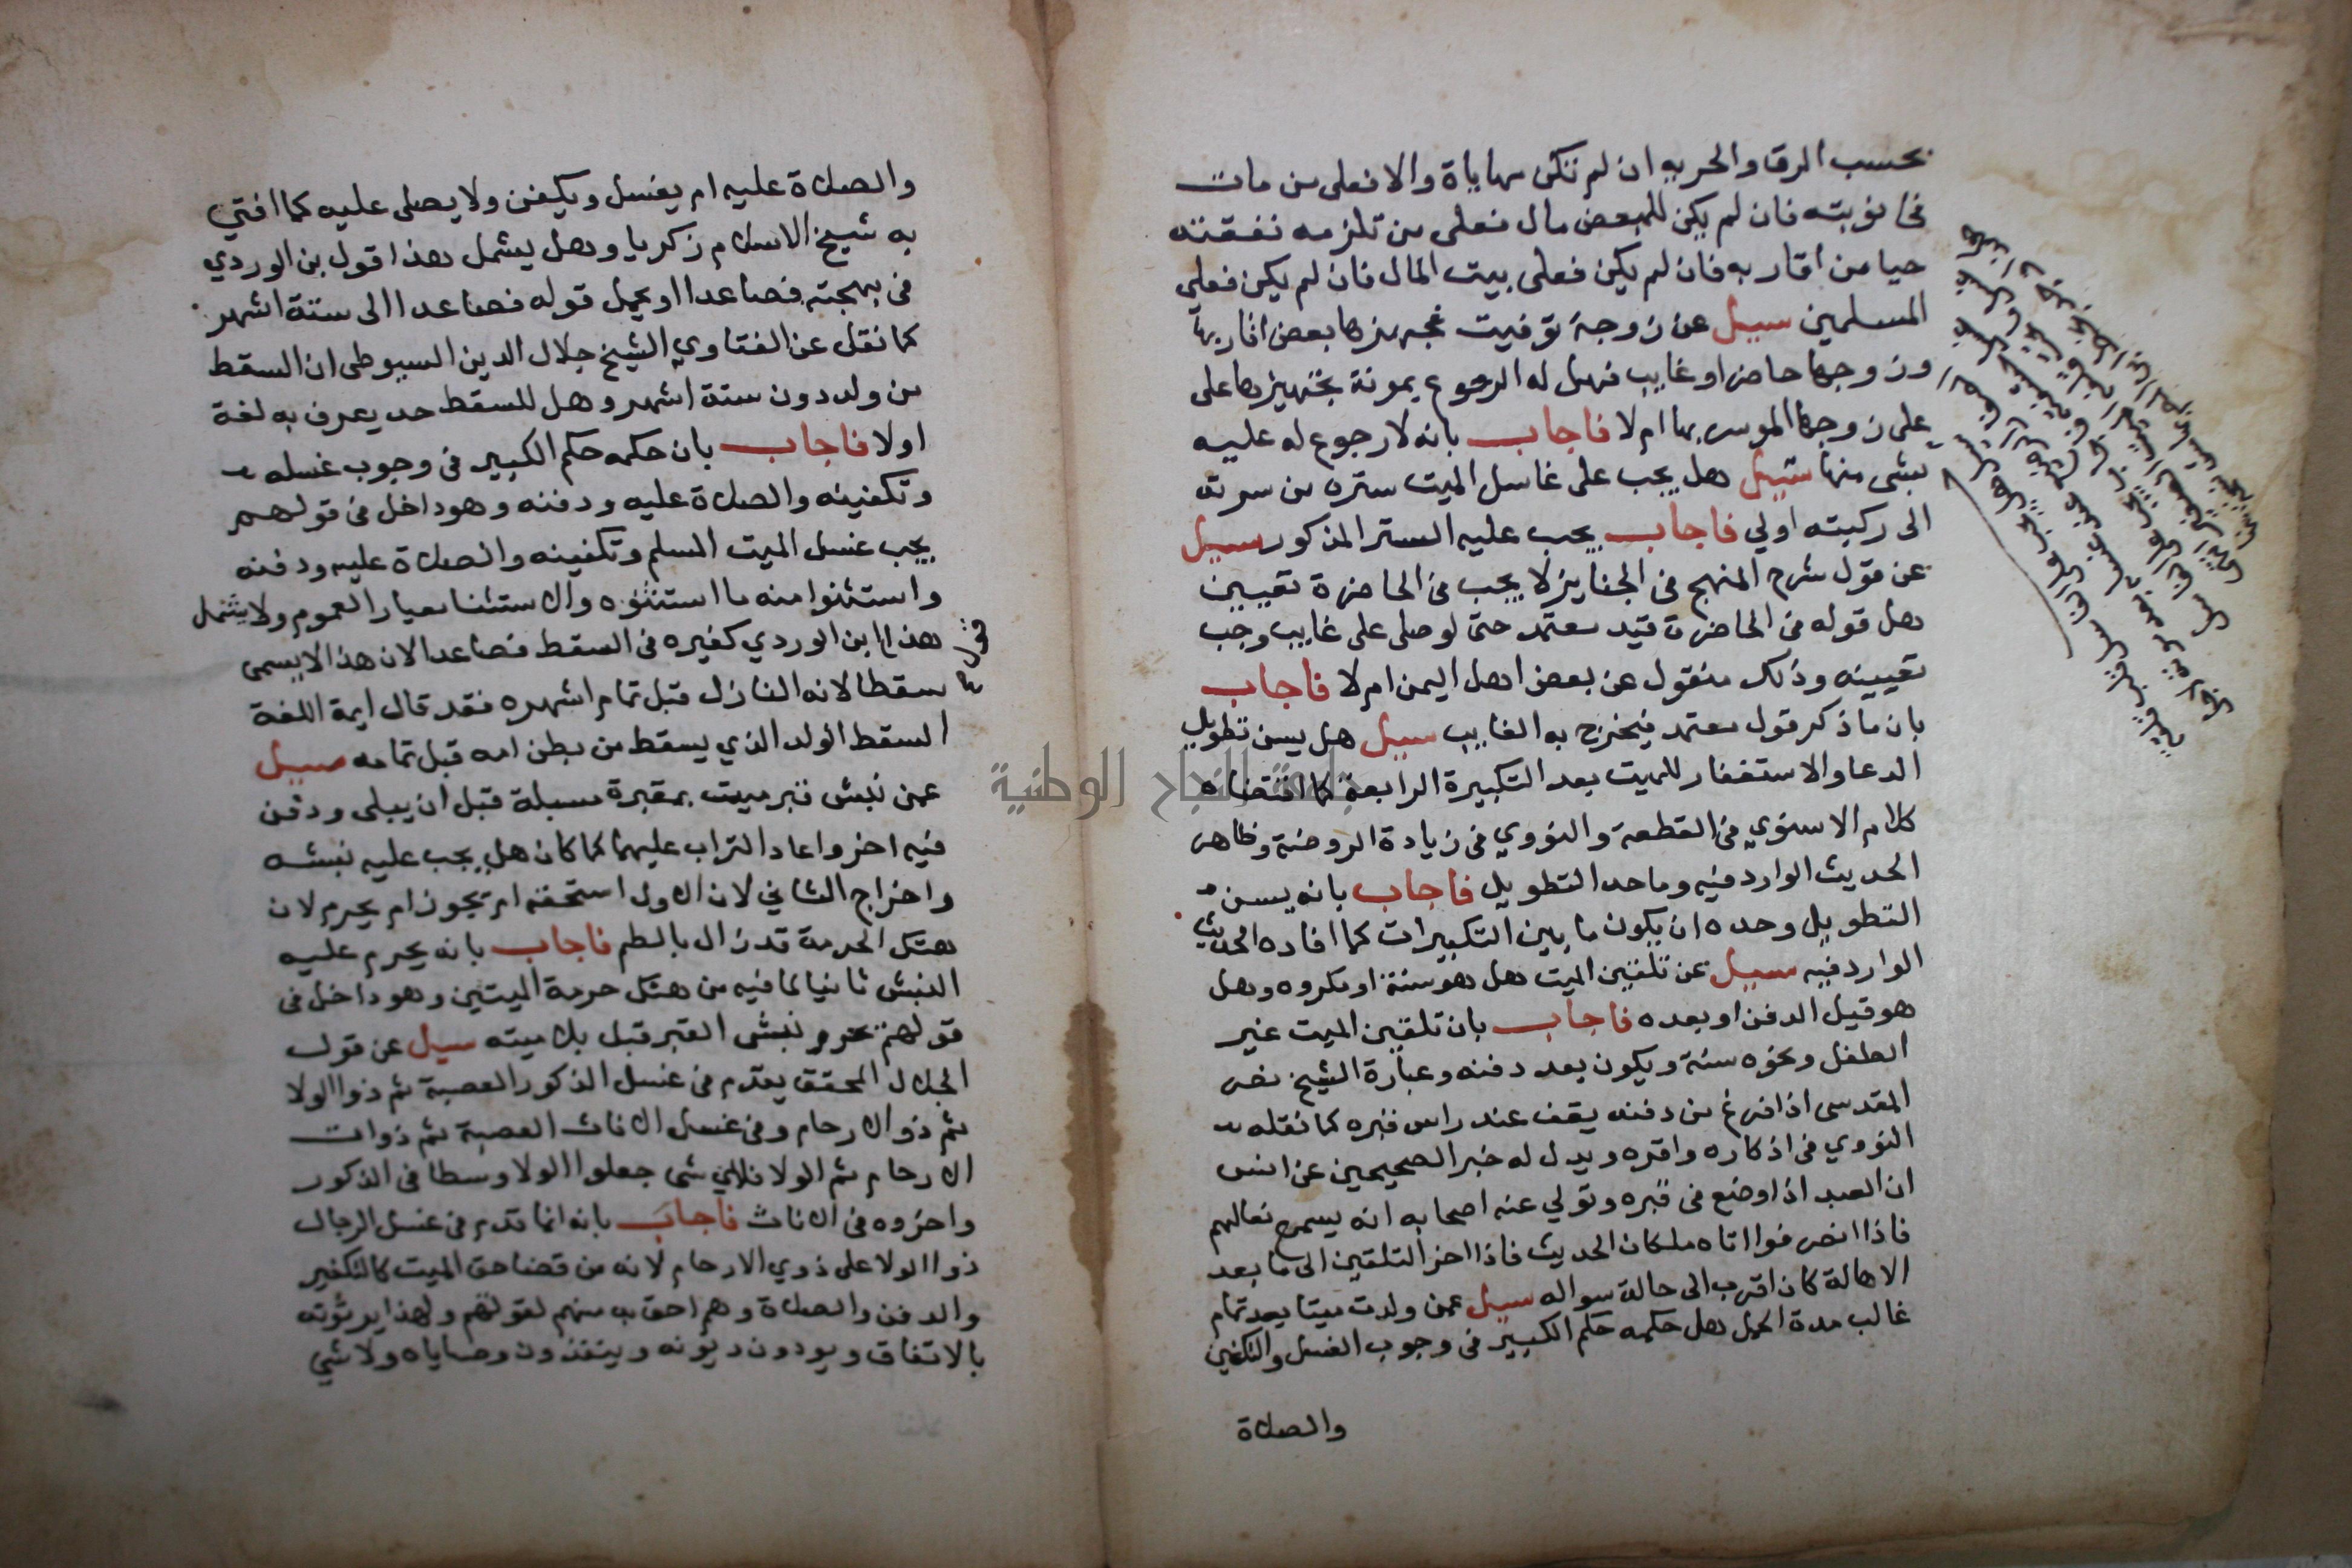 بحسب الرق والحريه ان لم تكن مهاياة والا فعلى من مات
في نوبته فان لم يكن للمبعض مال فعلى من تلزمه نفقته
حيا من اقاربه فان لم يكن فعلى بيت المال فان لم يكن فعلي
المسلمين سيل عن زوجة توفيت فجهزها بعض اقاربها
وزوجها حاضر او غايب فهل له الرجوع بمونة تجهيزها على
على زوجها الموسر بها ام لا فاجاب بانه لا رجوع له عليه
بشى منها سيل هل يجب على غاسل الميت ستره من سرته
الى ركبته اولي فاجاب يجب عليه الستر المذكور سيل
عن قول شرح المنهج في الجنايز لا يجب في الحاضرة تعيين
هل قوله في الحاضرة قيد معتمد حتى لو صلى على غايب وجب
تعيينه وذلك منقول عن بعض اهل اليمن ام لا فاجاب
بان ما ذكر قول معتمد فيخرج به الغايب سيل هل يسن تطويل
الدعا والاستغفار للميت بعد التكبيرة الرابعة كما اقتضاه
كلام الاسنوي في القطعة والنووي في زيادة الروضة وظاهر
الحديث الوارد فيه وما حد التطويل فاجاب بانه يسن
التطويل وحده ان يكون ما بين التكبيرات كما افاده الحديث
الوارد فيه سيل عن تلقين الميت هل هو سنة او مكروه وهل
هو قبل الدفن او بعده فاجاب بان تلقين الميت غير
الطفل ونحوه سنة ويكون بعد دفنه وعبارة الشيخ نصر
المقدسى اذا فرغ من دفنه يقف عند راس قبره كما نقله
النووي في اذكاره واقره ويدل له خبر الصحيحين عن انس
ان العبد اذا وضع في قبره وتولي عنه اصحابه انه يسمع نعالهم
فاذا انصرفوا اتاه ملكان الحديث فاذا اخر التلقين الى ما بعد
الاهالة كان اقرب الى حالة سواله سيل عمن ولدت ميتا بعد تمام
غالب مدة الحمل هل حكمه حكم الكبير في وجوب الغسل والتكفين
والصلاة
والصلاة عليه ام يغسل ويكفن ولا يصلى عليه كما افتي
به شيخ الاسلام زكريا وهل يشمل هذا قول بن الوردي
في بهجته فصاعدا او يحمل قوله فصاعدا الى ستة اشهر
كما نقل عن الفتاوي الشيخ جلال الدين السيوطي ان السقط
من ولد دون ستة اشهر وهل للسقط حد يعرف به لغة
اولا فاجاب بان حكمه حكم الكبير في وجوب غسله
وتكفينه والصلاة عليه ودفنه وهو داخل في قولهم
يجب غسل الميت المسلم وتكفينه والصلاة عليه ودفنه
واستثنوا منه ما استثنوه والاستثنا معيار العموم ولا يشمل
هذا ابن الوردي كغيره في السقط فصاعدا لان هذا لا يسمى
سقطا لانه النازل قبل تمام اشهره فقد قال ايمة اللغة
السقط الولد الذي يسقط من بطن امه قبل تمامه سيل
عمن نبش قبر ميت بمقبرة مسبلة قبل ان يبلى ودفن
فيه اخر واعاد التراب عليهما كما كان هل يجب عليه نبشه
واخراج الثاني لان الاول استحقه ام يجوز ام يحرم لان
هتك الحرمة قد زال بالطم فاجاب بانه يحرم عليه
النبش ثانيا لما فيه من هتك حرمة الميتين وهو داخل في
قولهم يحرم نبش القبر قبل بلا ميته سيل عن قول
الجلال المحقق يقدم في غسل الذكور العصبة ثم ذوا الولا
ثم ذوالارحام وفي غسل الاناث العصبة ثم ذوات
الارحام ثم الولا فلاي شى جعلوا الولا وسطا في الذكور
واخروه في الاناث فاجاب بانه انما قدم في غسل الرجال
ذوا الولا على ذوي الارحام لانه من قضا حق الميت كالتكفير
والدفن والصلاة وهم احق به منهم لقوتهم ولهذا يرثونه
بالاتفاق ويودون ديونه وينفذون وصاياه ولا شي
قول
جامعة النجاح الوطنية